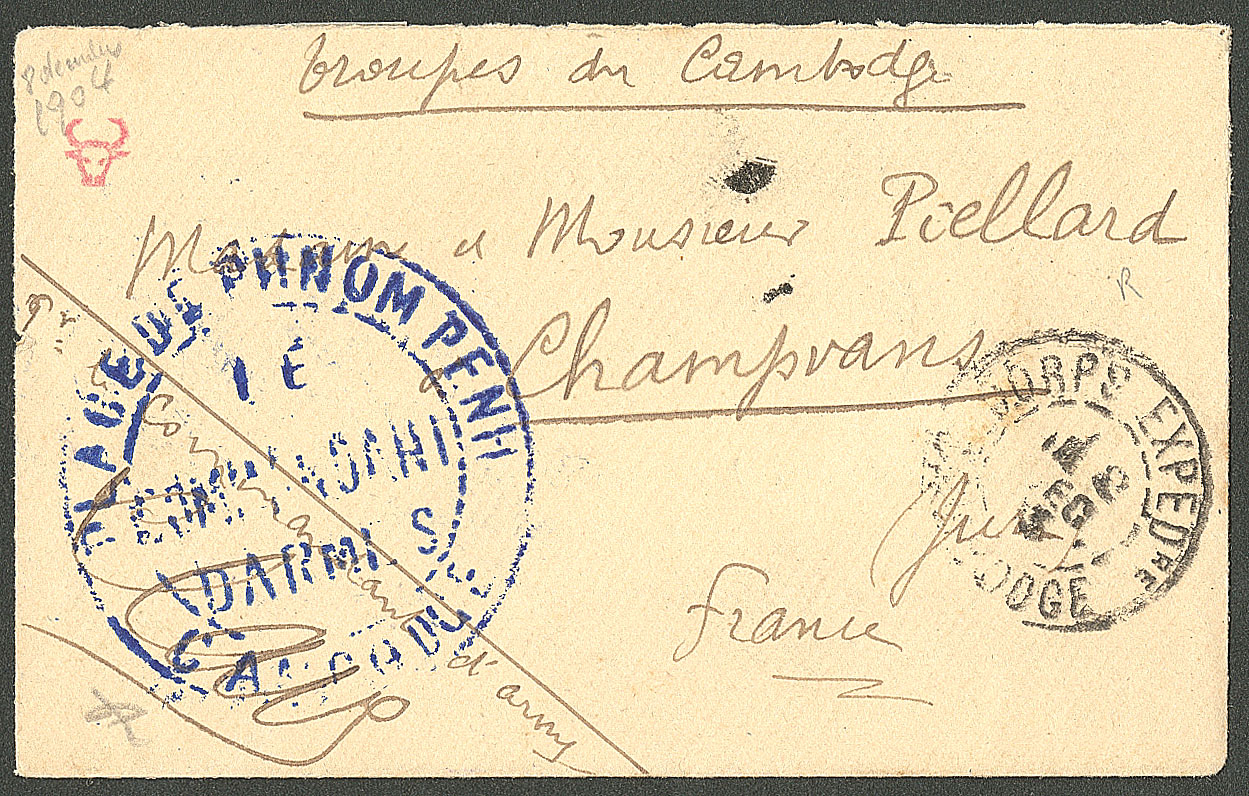 8 décembre
1904
Troupes du Cambodge
Madame et Monsieur Piellard
R
Champvans
Jura
France
PLACE DE PHNOM PENH
LE
COMMANDANT
D'ARMES
CAMBODGE
Le Commandant d'armes
CORPS EXPED.RE
ODGE